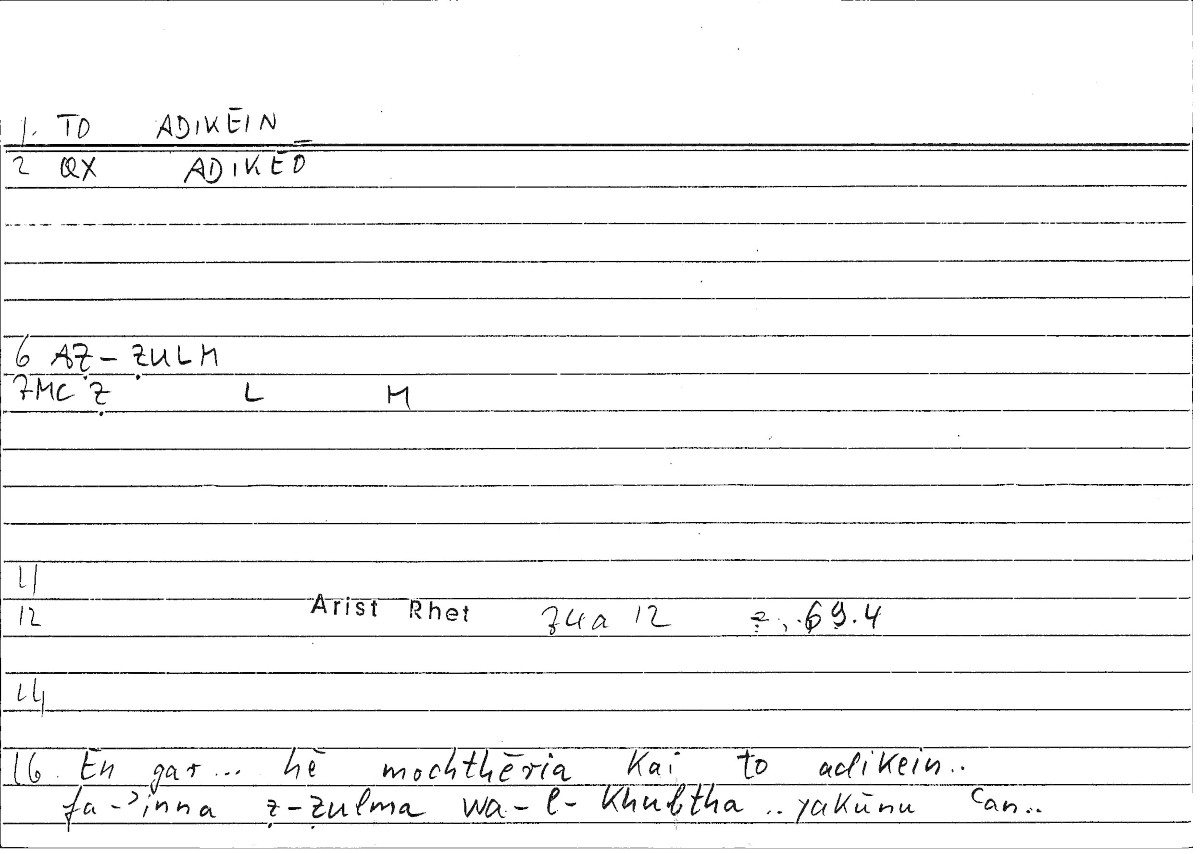 1. TO ADIKĒIN
2 QX ADIKĒŌ
6 AẒ-ẒULM
7MC Ẓ L M
11
12 Arist Rhet 74a 12 = 69.4
14
16. Ēn gar... hē mochthēria kai to adikein..
fa-ʾinna ẓ-ẓulma wa-l-khubtha ..yakūnu ʿan..